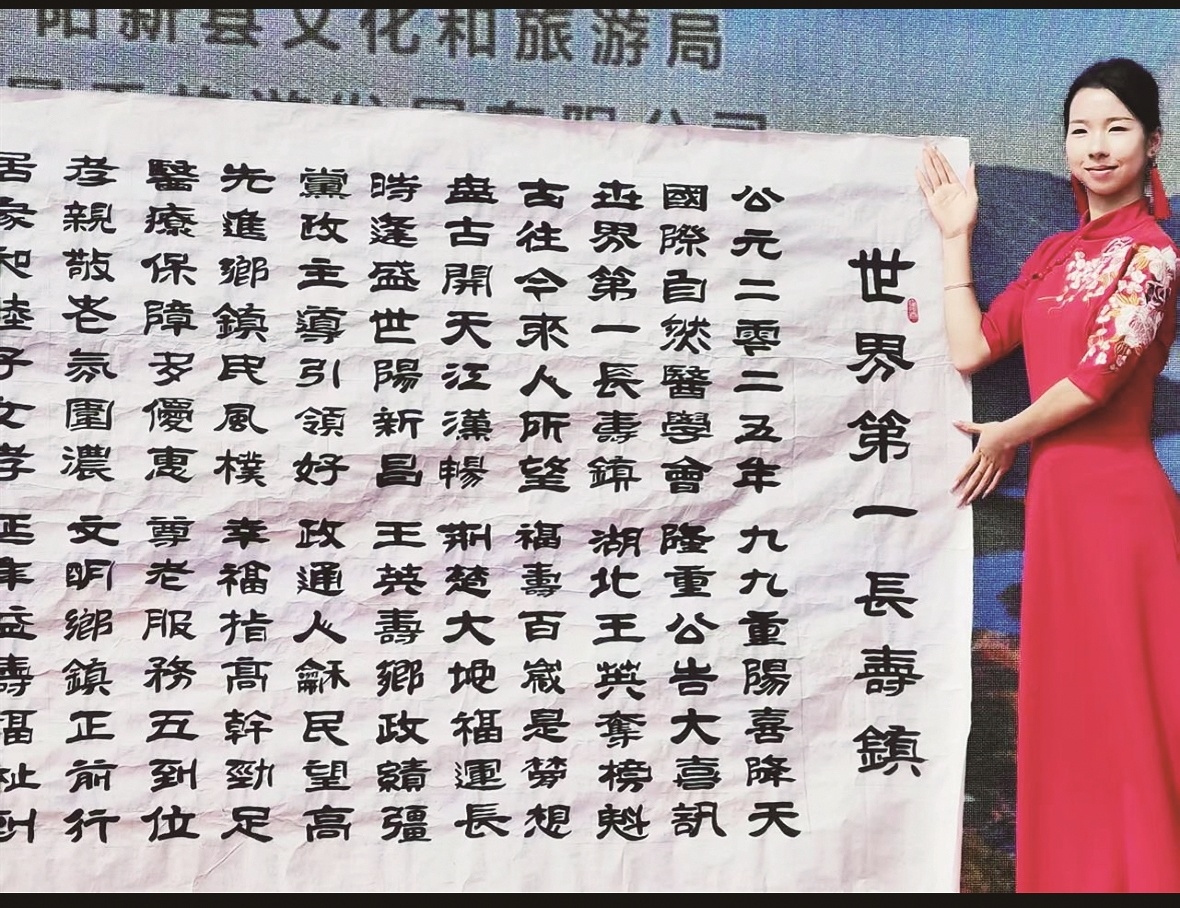 阳新县文化和旅游局
旅游发展有限公司
世界第一長壽鎮
公元二零二五年 九九重陽喜降天
國際自然醫學會 隆重公告大喜訊
世界第一長壽鎮 湖北王英奪榜魁
古往今來人所望 福壽百歲是夢想
盘古開天江漢暢 荆楚大地福運長
時逢盛世陽新昌 王英壽鄉政績疆
黨政主導引領好 政通人龢民望高
先進鄉鎮民風樸 幸福指高幹勁足
醫療保障多優惠 尊老服務五到位
孝親敬老氛圍濃 文明鄉鎮正前行
居家和睦子女孝 延年益壽福祉到